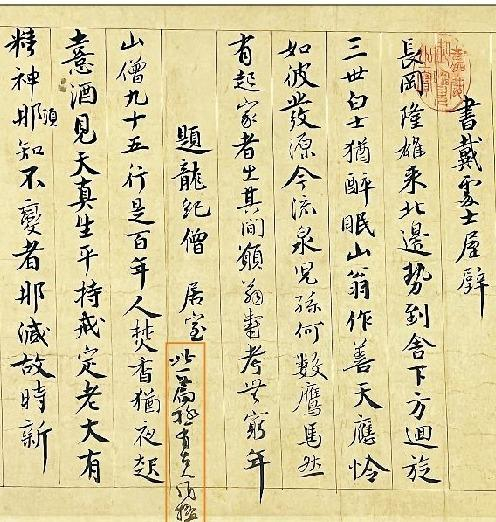 書戴處士屋壁
長岡隆雄來北邊勢到舍下方迴旋
三世白士猶醉眠山翁作善天應憐
如彼發源今流泉兒孫何數鷹馬然
有起家者出其間願翁壽考無窮年
題龍紀僧居室
此一篇極有古人風格
山僧九十五行是百年人焚香猶夜起
憙酒見天真生平持戒定老大有
精神那須知不變者那減故時新